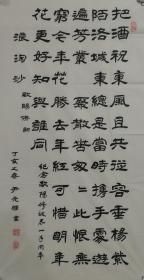 把酒祝東風且共從容垂楊紫
陌洛城東總是當時攜手處遊
遍芳叢聚散苦匆匆此恨無
窮今年花勝去年紅可惜明年
花更好知與誰同 紀念歐陽修誕辰一千周年
浪淘沙 歐陽修詞
丁亥之春 尹先 書